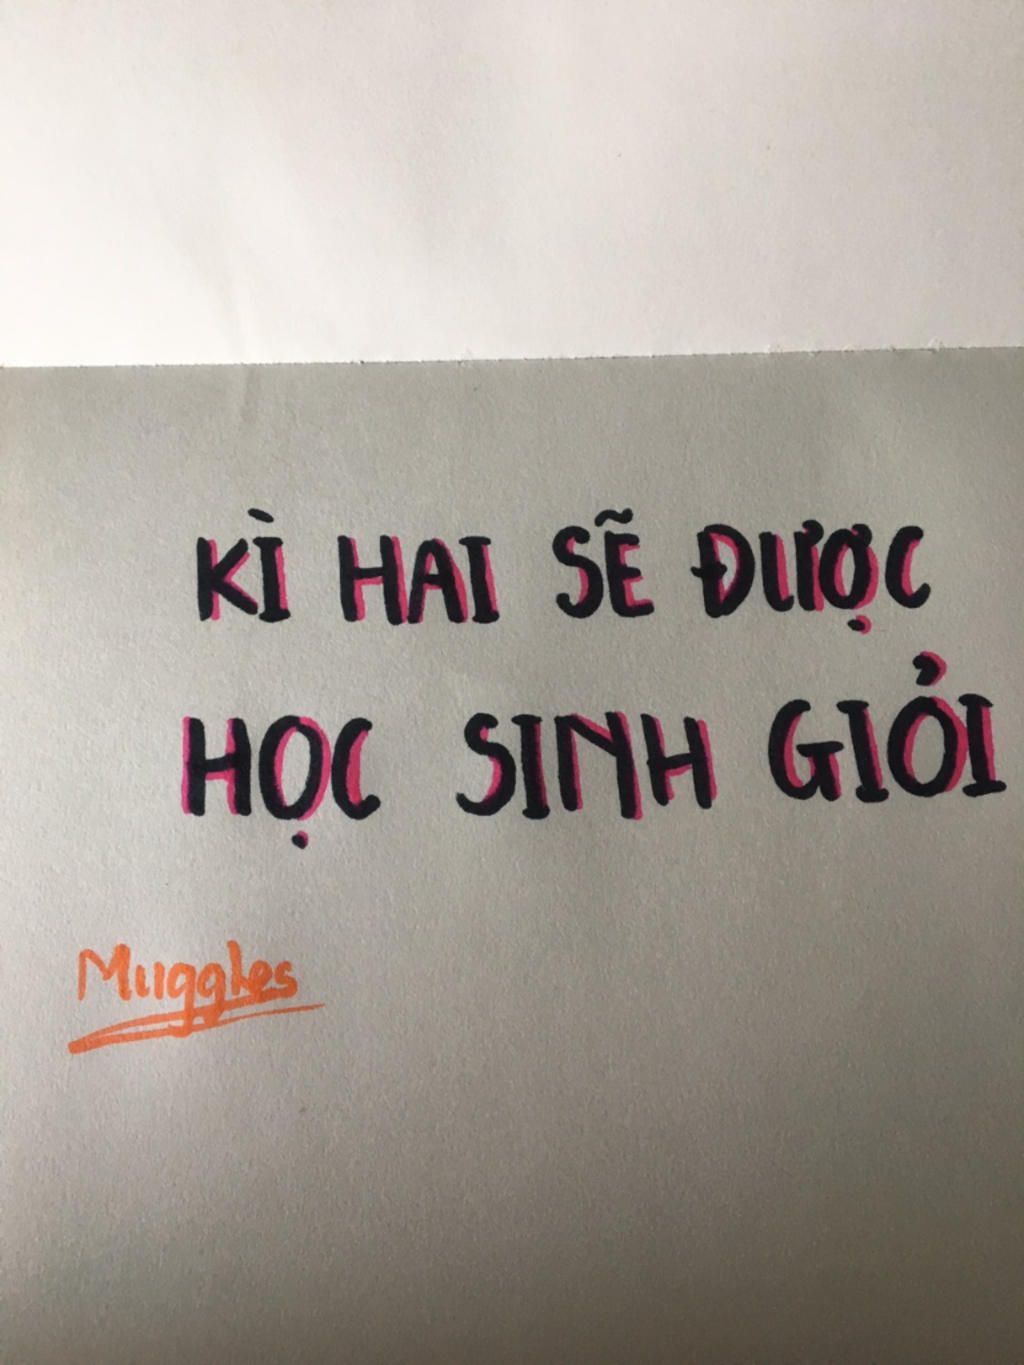 KÌ HAI SẼ ĐƯỢC
HỌC SINH GIỎI
Muggles